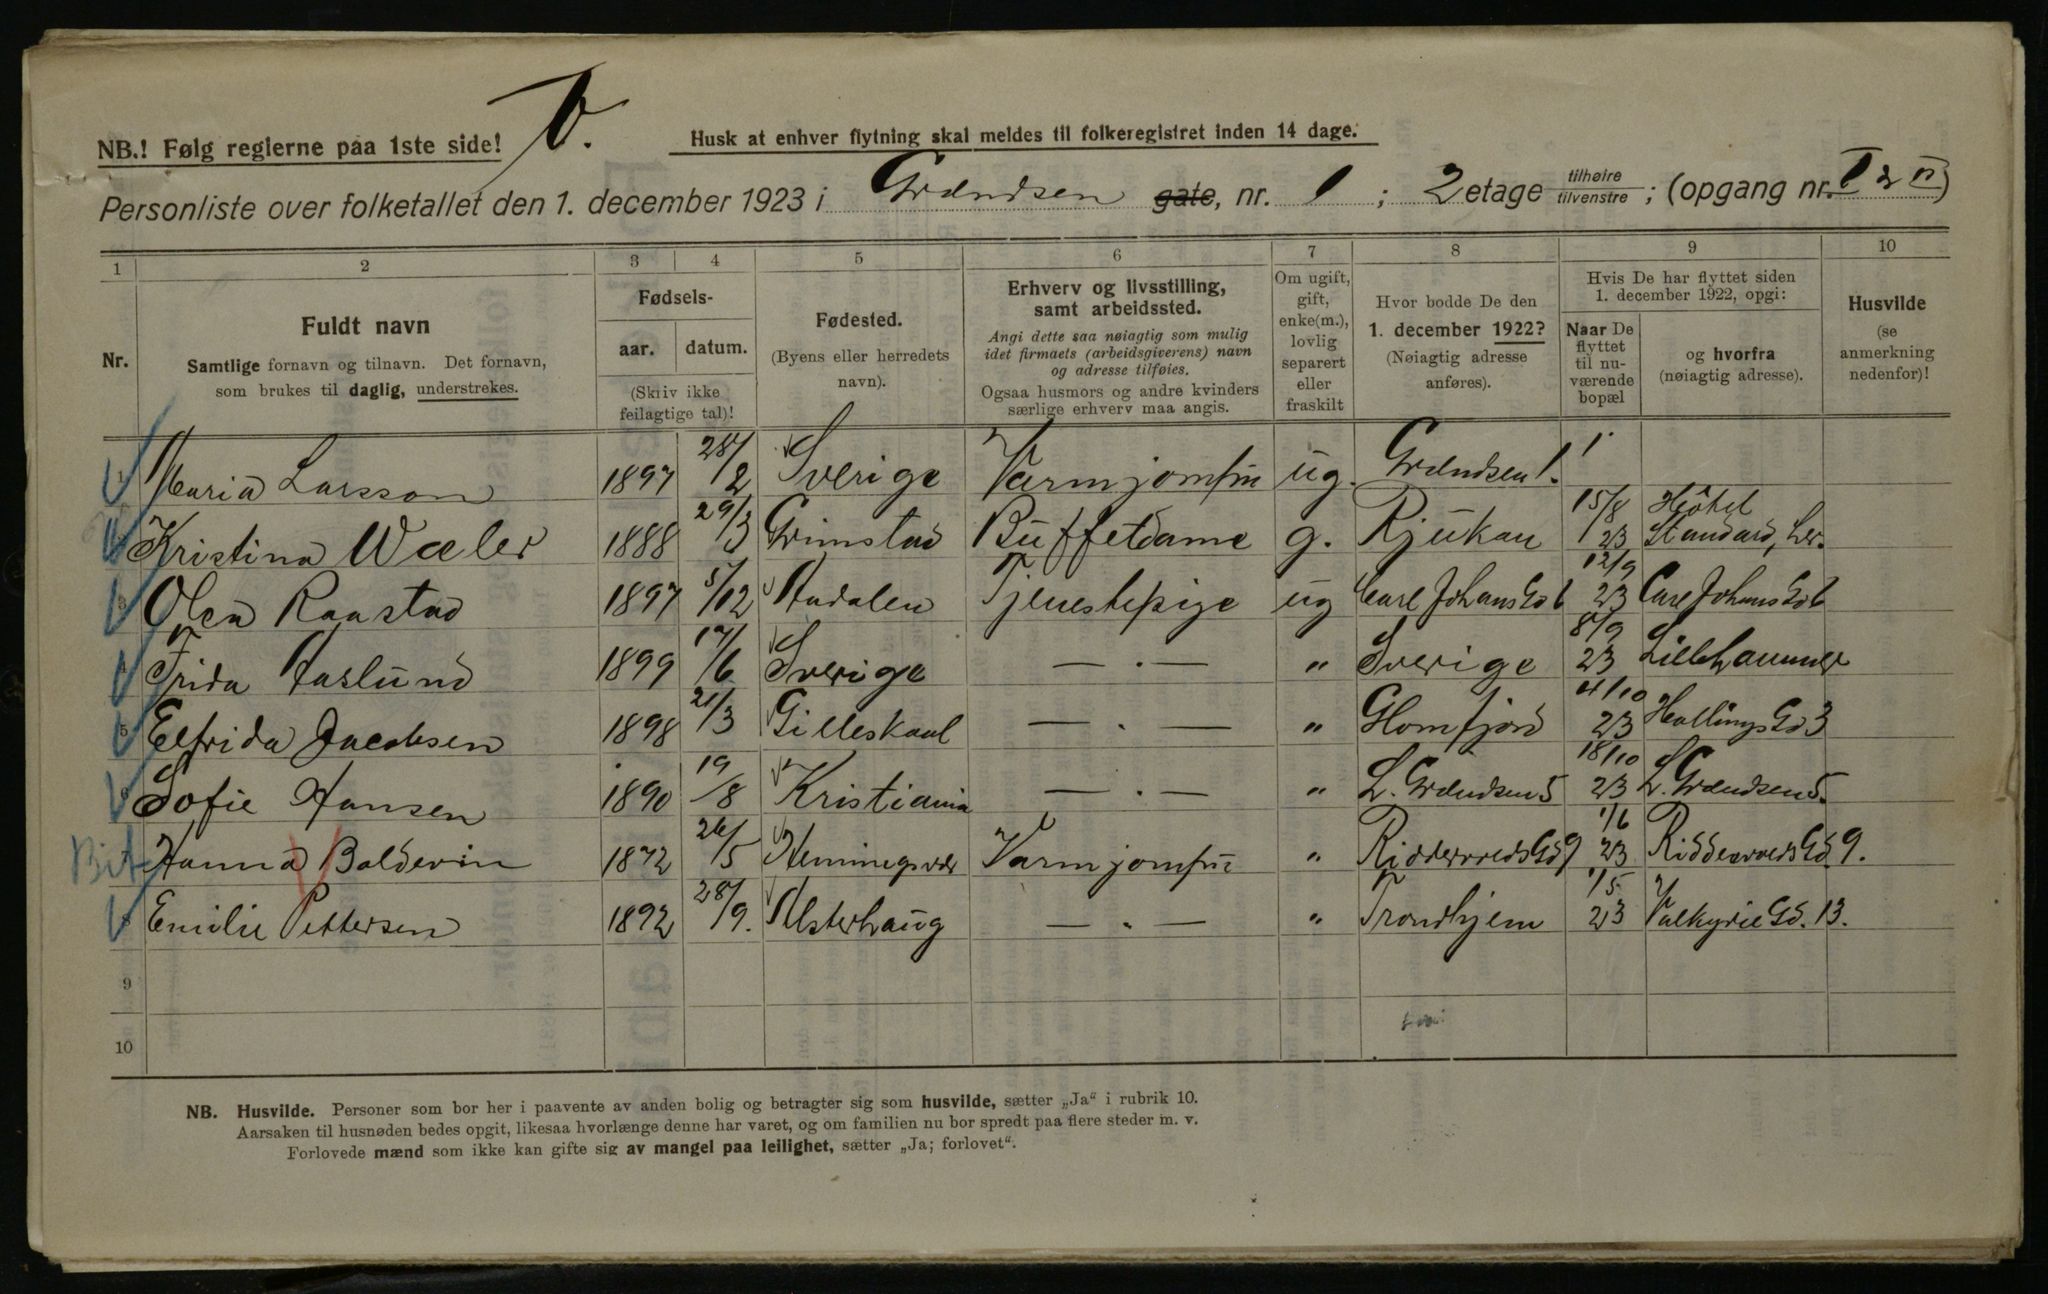 NB.! Følg reglerne paa 1ste side!
Husk at enhver flytning skal meldes til folkeregistret inden 14 dage.
Personliste over folketallet den 1. december 1923 i Grændsen gate, nr. 1; 2 etage tilhøire tilvenstre; (opgang nr. I & II)
1 2 3 4 5 6 7 8 9 10
Nr.
Fuldt navn
Samtlige fornavn og tilnavn. Det fornavn,
som brukes til daglig, understrekes.
Fødsels-
aar. datum.
(Skriv ikke
feilagtige tal)!
Fødested.
(Byens eller herredets
navn).
Erhverv og livsstilling,
samt arbeidssted.
Angi dette saa nøiagtig som mulig
idet firmaets (arbeidsgiverens) navn
og adresse tilføies.
Ogsaa husmors og andre kvinders
særlige erhverv maa angis.
Om ugift,
gift,
enke(m.),
lovlig
separert
eller
fraskilt
Hvor bodde De den
1. december 1922?
(Nøiagtig adresse
anføres).
Hvis De har flyttet siden
1. december 1922, opgi:
Naar De
flyttet
til nu-
værende
bopæl
og hvorfra
(nøiagtig adresse).
Husvilde
(se
anmerkning
nedenfor)!
1 Maria Larsson 1897 28/2 Sverige Varmjomfru ug. Grændsen 1.
2 Kristina Wæler 1888 29/3 Grimstad Buffetdame g. Rjukan 15/8 23 Hôtel Standard, her.
3 Olea Raastad 1897 5/12 Aadalen Tjenestepige ug Carl Johans Gd 6 12/9 23 Carl Johans Gd 6
4 Frida Aaslund 1899 17/6 Sverige — . — „ Sverige 8/9 23 Lillehammer
5 Elfrida Jacobsen 1898 21/3 Gilleskaal — . — „ Glomfjord 4/10 23 Hallings Gd 3
6 Sofie Hansen 1890 19/8 Kristiania — . — „ L. Grændsen 5 18/10 23 L. Grændsen 5.
7 Hanna Boldevin 1872 26/5 Henningsvær Varmjomfru „ Riddervolds Gd 9 1/6 23 Riddervolds Gd. 9.
8 Emilie Pettersen 1892 28/9. Alsterhaug — . — „ Trondhjem 1/5 23 Valkyrie Gd. 13.
9
10
NB. Husvilde. Personer som bor her i paavente av anden bolig og betragter sig som husvilde, sætter „Ja“ i rubrik 10.
Aarsaken til husnøden bedes opgit, likesaa hvorlænge denne har varet, og om familien nu bor spredt paa flere steder m. v.
Forlovede mænd som ikke kan gifte sig av mangel paa leilighet, sætter „Ja; forlovet“.